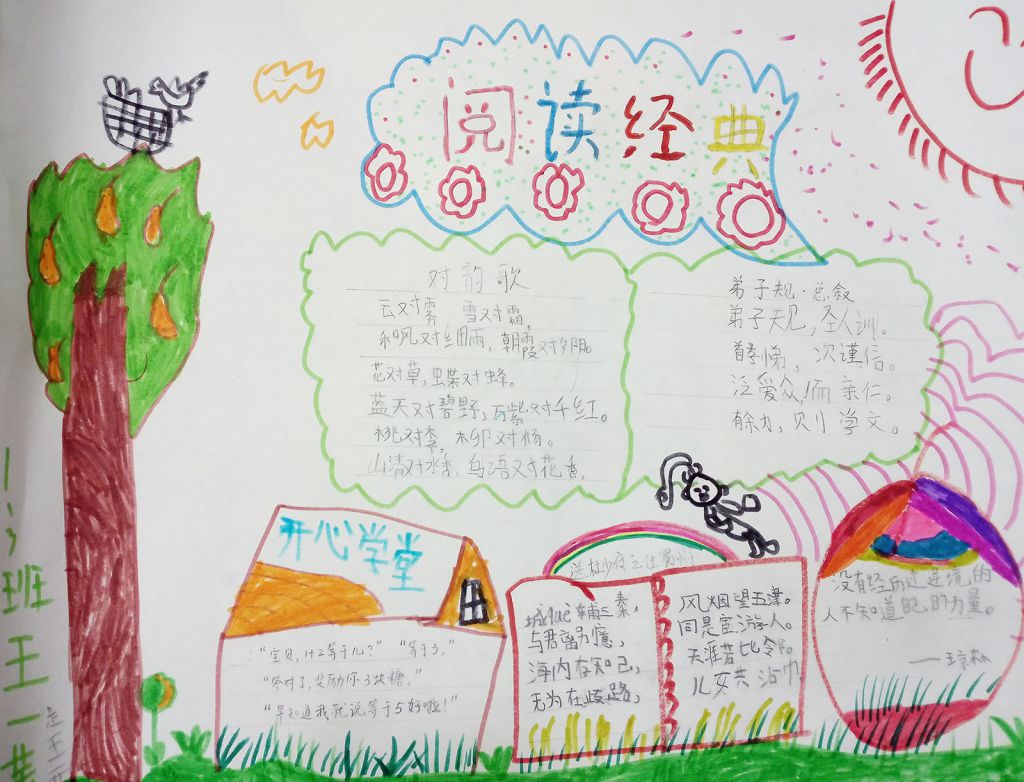 阅读经典
对韵歌
云对雾 雪对霜,
和风对细雨,朝霞对夕阳。
花对草,蝶对蜂。
蓝天对碧野,万紫对千红。
桃对李,柳对杨。
山清对水秀,鸟语对花香。
弟子规·总叙
弟子规,圣人训。
首孝悌,次谨信。
泛爱众,而亲仁。
有余力,则学文。
开心学堂
“宝贝,1+2等于几?” “等于3。
“答对了,奖励你3块糖。”
“早知道我就说等于5好啦!”
送杜少府之任蜀州
城què辅三秦,
与君离别意,
海内存知己,
无为在歧路,
风烟望五津。
同是宦游人。
天涯若比邻。
儿女共沾巾
没有经历过逆境的
人不知道自己的力量。
——琼森
1、3班王一